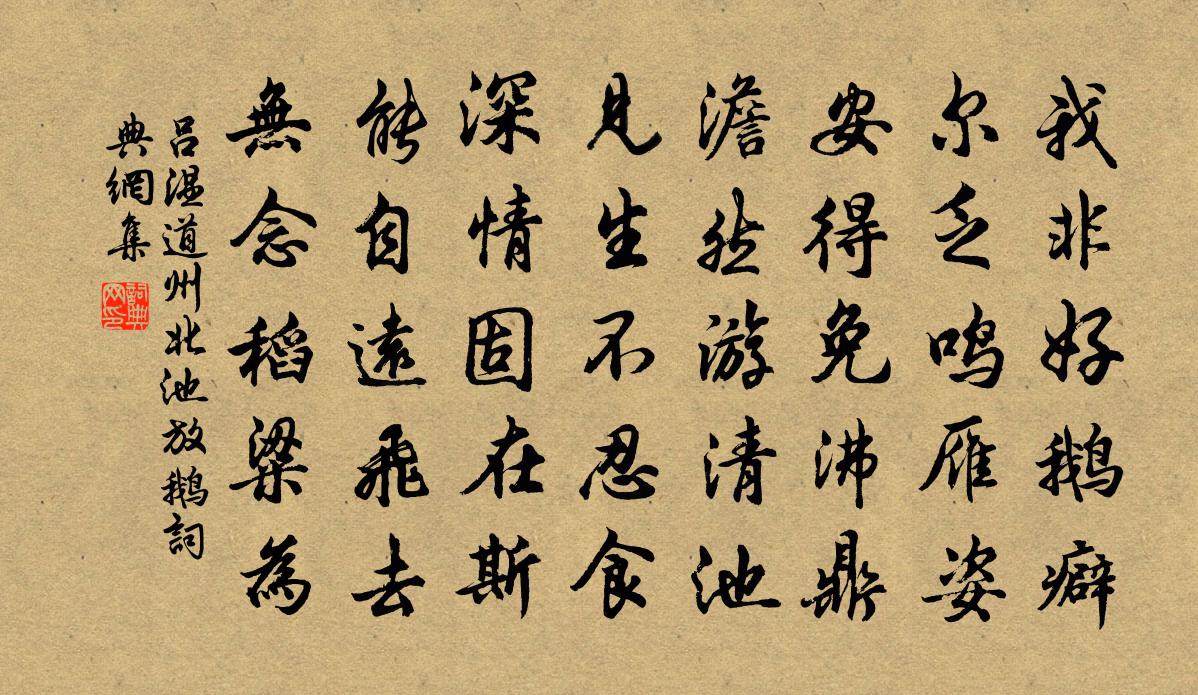 我非好鹅癖
尔乏鸣雁姿
安得免沸鼎
澹然游清池
见生不忍食
深情固在斯
能自遠飛去
無念稻粱為
吕温道州北池放鵝詞
典網集
詞典网印